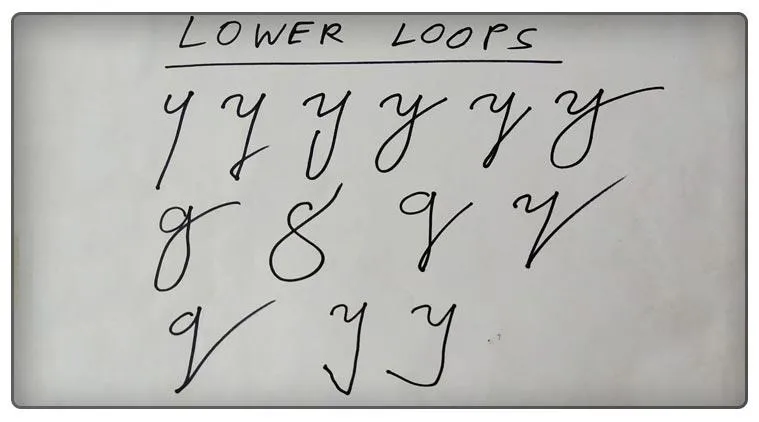 LOWER LOOPS
y y y y y y
g 8 q y
q y y